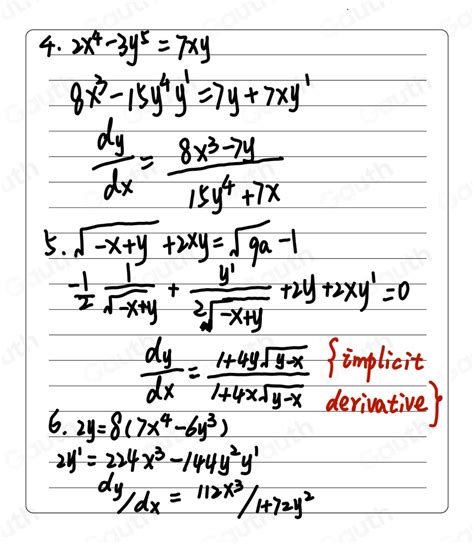 4. 2x⁴-3y⁵=7xy
8x³-15y⁴y'=7y+7xy'
dy/dx = (8x³-7y)/(15y⁴+7x)
5. √(-x+y) +2xy=√(9a) -1
-1/2 1/√(-x+y) + y'/(2√(-x+y)) +2y+2xy'=0
dy/dx = (1+4y√(y-x))/(1+4x√(y-x)) {implicit derivative}
6. 2y=8(7x⁴-6y³)
2y'=224x³-144y²y'
dy/dx = 112x³/1+72y²